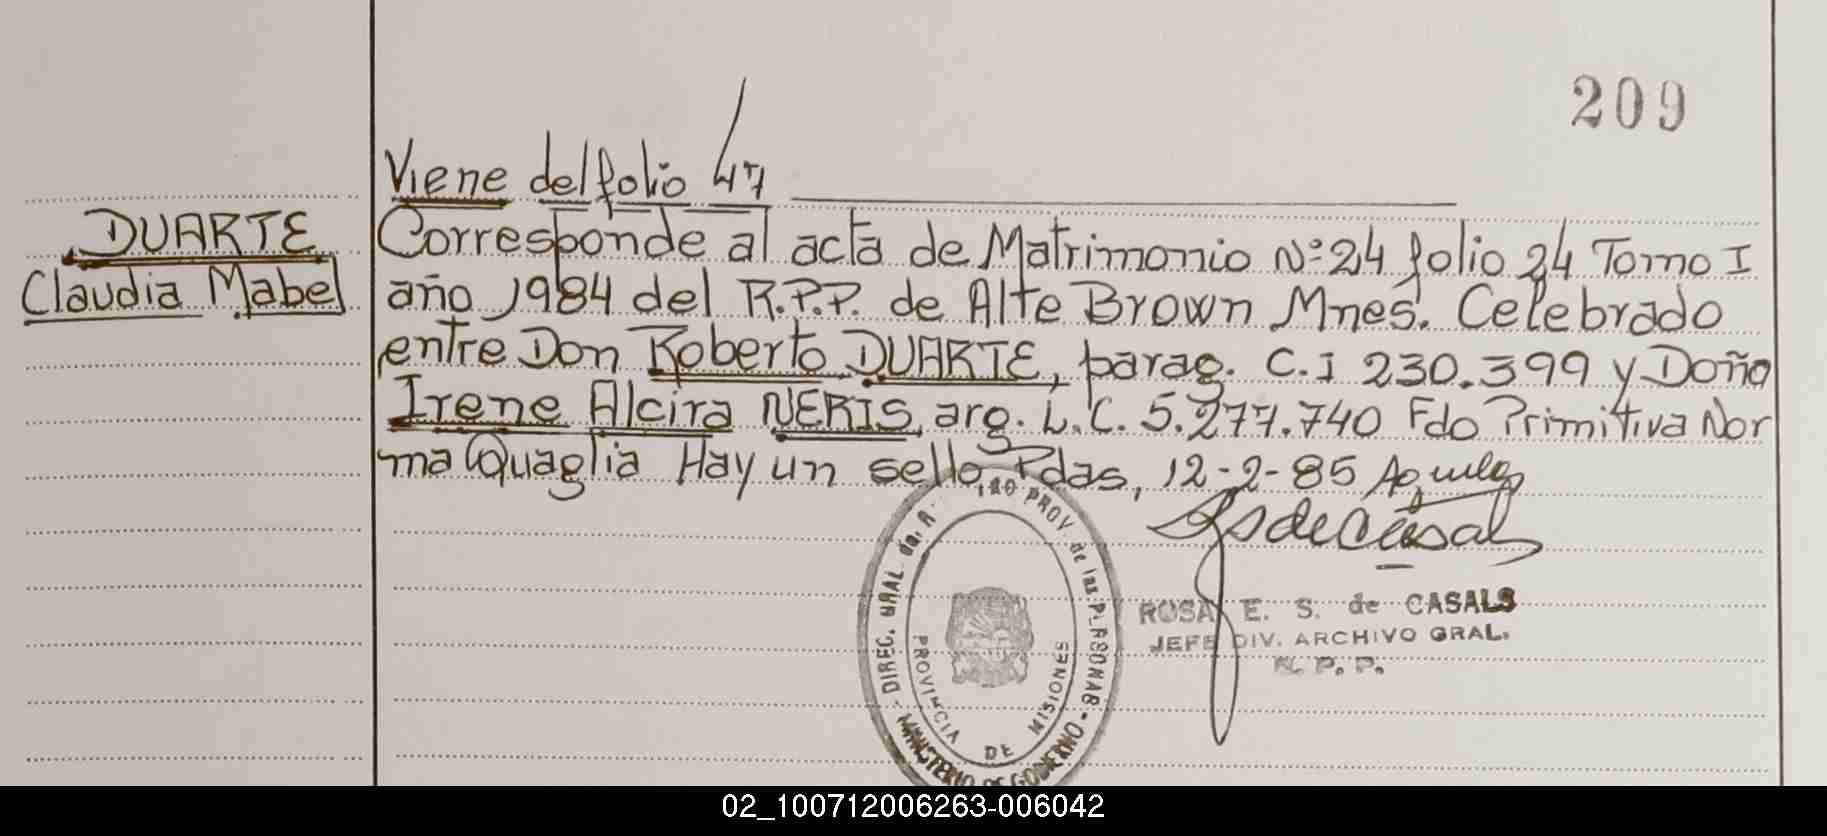 209
Viene del folio 47
DUARTE
Claudia Mabel
Corresponde al acta de Matrimonio Nº 24 folio 24 Tomo I
año 1984 del R.P.P. de Alte Brown Mnes. Celebrado
entre Don Roberto DUARTE, parag. C.I 230.399 y Doña
Irene Alcira NERIS, arg. L.C. 5.277.740 Fdo Primitiva Nor
ma Quaglia Hay un sello, Pdas, 12-2-85
ROSA E. S. de CASALS
JEFE DIV. ARCHIVO GRAL.
R. P. P.
DIREC. GRAL. de PROV. de las PERSONAS
MINISTERIO DE GOBIERNO
PROVINCIA DE MISIONES
02_100712006263-006042